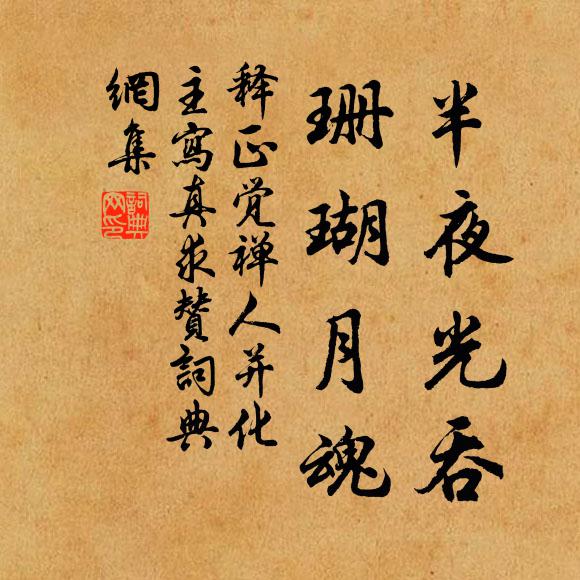 半夜光吞
珊瑚月魂
释正觉禅人并化
主寫真求贊詞典
網集
詞典
網印